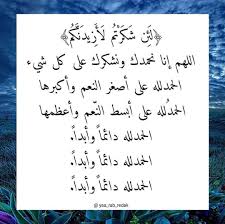 ﴿لَئِن شَكَرْتُمْ لَأَزِيدَنَّكُمْ﴾
اللهم إنا نحمدك ونشكرك على كل شيء
الحمدلله على أصغر النعم وأكبرها
الحمدُلله على أبسط النّعم وأعظمها
الحمدلله دائماً وأبداً.
الحمدلله دائماً وأبداً.
الحمدلله دائماً وأبداً.
@ yaa_rab_redak